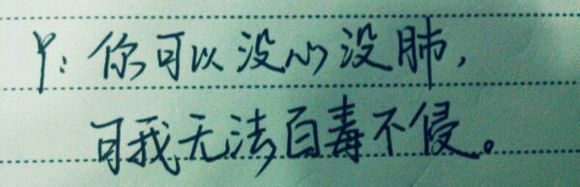 你可以没心没肺,
可我无法百毒不侵。